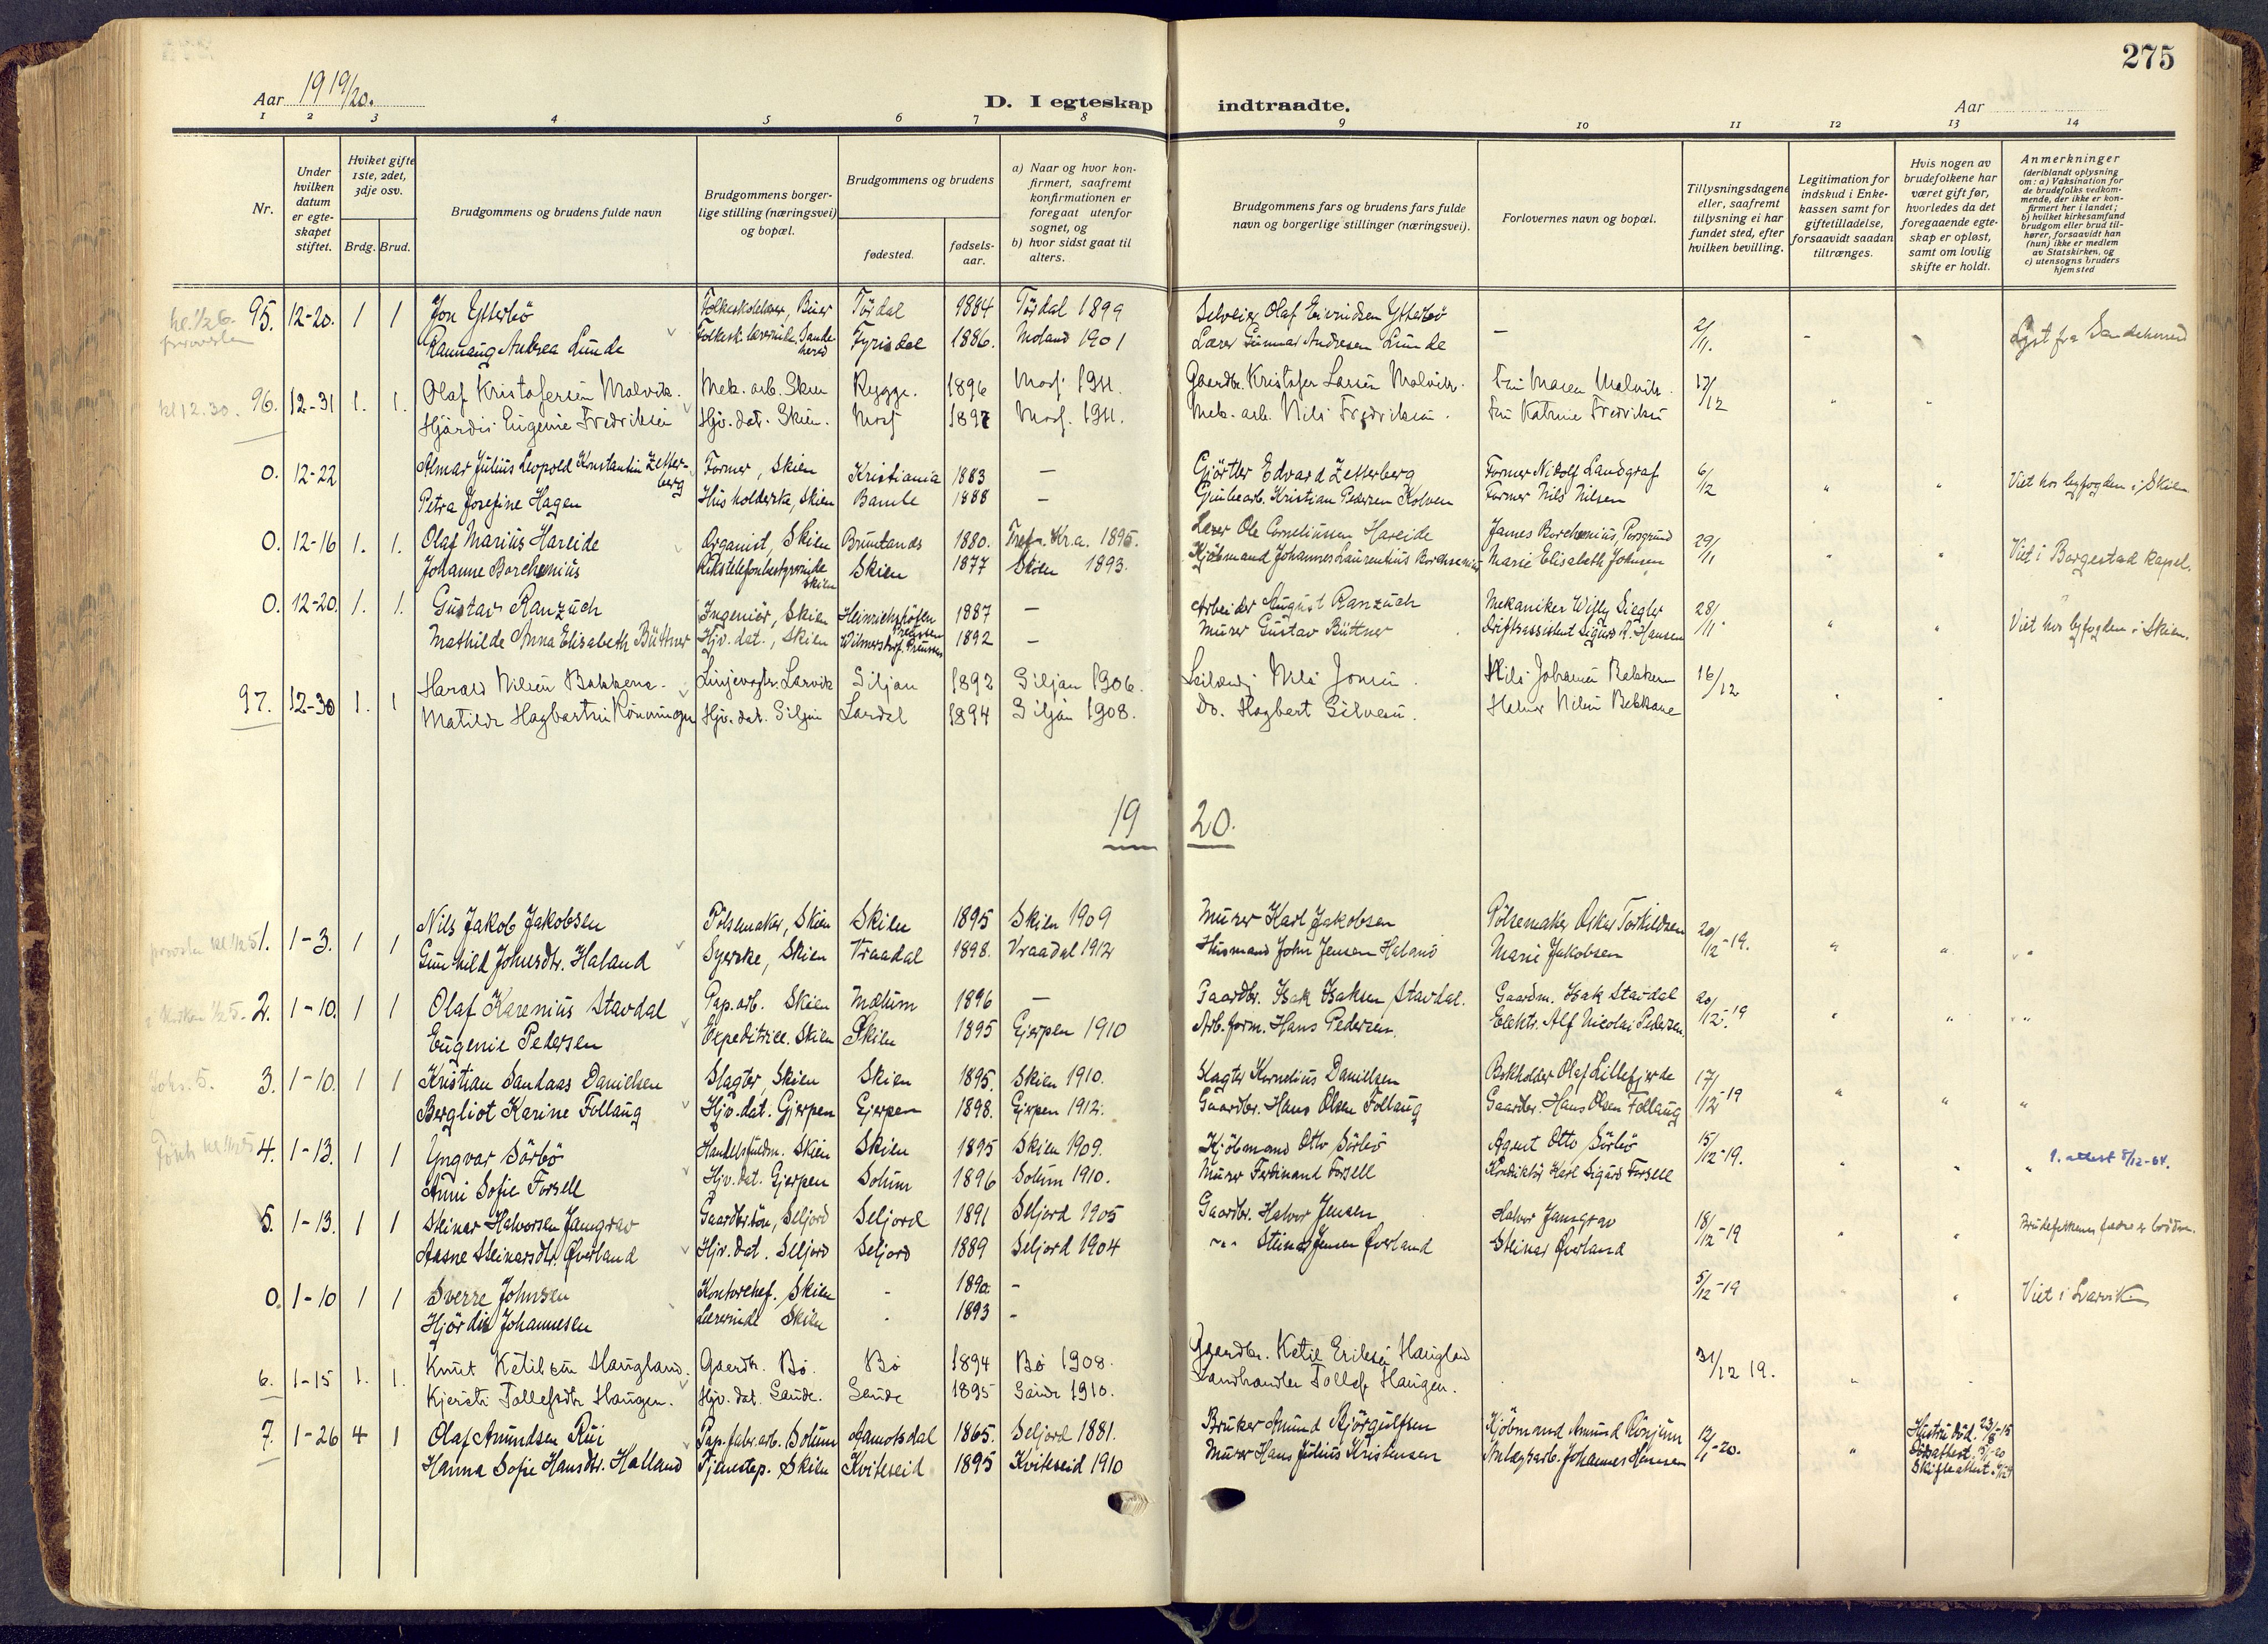 275
Aar 1919/20.
D. I egteskap indtraadte.
Aar
1 2 3 4 5 6 7 8 9 10 11 12 13 14
Nr.
Under hvilken datum er egteskapet stiftet.
Hviket gifte 1ste, 2det, 3dje osv.
Brdg. Brud.
Brudgommens og brudens fulde navn
Brudgommens borgerlige stilling (næringsvei) og bopæl.
Brudgommens og brudens
fødested.
fødselsaar.
a) Naar og hvor konfirmert, saafremt konfirmationen er foregaat utenfor sognet, og
b) hvor sidst gaat til alters.
Brudgommens fars og brudens fars fulde navn og borgerlige stillinger (næringsvei).
Forlovernes navn og bopæl.
Tillysningsdagene eller, saafremt tillysning ei har fundet sted, efter hvilken bevilling.
Legitimation for indskud i Enkekassen samt for giftetilladelse, forsaavidt saadan tiltrænges.
Hvis nogen av brudefolkene har været gift før, hvorledes da det foregaaende egteskap er opløst, samt om lovlig skifte er holdt.
Anmerkninger (deriblandt oplysning om: a) Vaksination for de brudefolks vedkommende, der ikke er konfirmert her i landet; b) hvilket kirkesamfund brudgom eller brud tilhører, forsaavidt han (hun) ikke er medlem av Statskirken, og c) utensogns bruders hjemsted
95. 12-20. 1 1 Jon Ytterbö Folkeskolelærer, Tördal 1884 Tördal 1899 Selveier Olaf Eivindsen Ytterbö - 2/11. - Lyst fra Sandeherred
Rannaug Andrea Lunde Folkesk. lærerinde, Sandeherred Fyrisdal 1886. Moland 1901 Lærer Gunnar Andresen Lunde
kl 12.30. 96. 12-31 1. 1. Olaf Kristofersen Molvik. Mek. arb. Skien Rygge. 1896 Moss 1911. Gaardbr. Kristofer Larsen Molvik. Fru Maren Molvik. 17/12 "
Hjördis Eugenie Fredriksen Hjv. dat. Skien. Moss 1897 Moss. 1911. Mek. arb. Nils Fredriksen. Fru Katrine Fredriksen
0. 12-22 Almar Julius Leopold Konstantin Zetterberg Former, Skien Kristiania 1883 - Gjörtler Edvard Zetterberg Former Nikolf Landgraf 6/12 " " Viet hos byfogden i Skien
Petra Josefine Hagen Husholderske, Skien Bamle 1888 - Grubearb. Kristian Pedersen Kolven Former Nils Nilsen
0. 12-16 1. 1. Olaf Marius Hareide Organist, Skien Brunlands 1880. Tref. Kr.a. 1895. Lærer Ole Corneliussen Hareide James Borchsenius, Porsgrund 29/11 " " Viet i Borgestad kapel.
Johanne Borchsenius Rikstelefonbestyrerinde Skien Skien 1877 Skien 1893. Kjöbmand Johannes Laurentius Borchsenius Marie Elisabeth Johnsen
0. 12-20. 1. 1. Gustav Ranzuch Ingeniör, Skien Heinrichshöfen Preussen 1887 - Arbeider August Ranzuch Mekaniker Willy Siegler 28/11 " " Viet hos byfogden i Skien.
Mathilde Anna Elisabeth Büttner Hjv. dat., Skien Wilmersdorf. Preussen 1892 - Murer Gustav Büttner Driftsassistent Sigurd A. Hansen
97. 12-30 1. 1 Harald Nilsen Bakkene. Linjevogter. Larvik Siljan 1892 Siljan 1906. Nils Jonsen. Nils Johansen Bakkene 16/12
Matilde Hagbartsen Rönningen Hjv. dat. Siljan Lardal 1894 Siljan 1908. Do. Hagbart Gilvesen. Halvor Nilsen Bakkane
1920.
1. 1-3. 1 1 Nils Jakob Jakobsen Pölsemaker, Skien Skien 1895 Skien 1909 Murer Karl Jakobsen Pölsemaker Oskar Torkildsen 20/12-19. " " "
Gunhild Johnsdtr. Haland Syerske, Skien Vraadal 1898. Vraadal 1912 Husmand John Jensen Haland Marie Jakobsen
2. 1-10. 1 1 Olaf Karenius Stavdal Pap. arb. Skien Mælum 1896 - Gaardbr. Isak Isaksen Stavdal. Gaardm. Isak Stavdal 20/12-19 " " "
Eugenie Pedersen Expeditrice. Skien Skien 1895 Gjerpen 1910 Arb. form. Hans Pedersen. Elektr. Alf Nicolai Pedersen.
Johs. 5. 3. 1-10. 1 1 Kristian Sandaas Danielsen Slagter, Skien Skien 1895. Skien 1910. Slagter Kornelius Danielsen Bokholder Olaf Lillefjerde 17/12-19 " " "
Bergliot Karine Follaug Hjv. dat. Gjerpen Gjerpen 1898. Gjerpen 1912. Gaardbr. Hans Olsen Follaug Gaardbr. Hans Olsen Follaug
4. 1-13. 1 1 Yngvar Sörbö Handelsfuldm. Skien Skien 1895 Skien 1909. Kjöbmand Otto Sörbö Agent Otto Sörbö 15/12-19. " " " 1. attest 8/12-64.
Anni Sofie Forsell Hjv. dat. Gjerpen Solum 1896 Solum 1910. Murer Ferdinand Forsell Konduktör Karl Sigurd Forsell
5. 1-13. 1 1 Steinar Halvorsen Jamgrav Gaardbr. sön, Seljord Seljord 1891 Seljord 1905 Gaardbr. Halvor Jensen Halvor Jamgrav 18/12-19 " " Brudefolkenes fædre er brödre.
Aasne Steinarsdtr. Øverland Hjv. dat. Seljord Seljord 1889 Seljord 1904 " Steinar Jensen Øverland Steinar Øverland
0. 1-10 1 1 Sverre Johnsen Kontorchef. Skien - 1890. - 5/12-19 " Viet i Larvik
Hjördis Johannesen Lærerinde Skien - 1893 -
6. 1-15 1. 1. Knut Ketilsen Haugland. Gaardbr. Bö. Bö 1894 Bö 1908. Gaardbr. Ketil Eriksen Haugland 31/12 19. "
Kjersti Tollefsdtr Haugen. Hjv. dat. Saude. Saude 1895 Saude 1910. Landhandler Tollef Haugen.
7. 1-26 4 1 Olaf Amundsen Rui Pap. fabr. arb. Solum Aamotsdal 1865. Seljord 1881. Bruker Amund Björgulfsen Kjöbmand Amund Rönjum 12/1-20. " Hustru död. 23/8-15
Hanna Sofie Hansdtr. Halland Tjenestep. Skien Kviteseid 1895 Kviteseid 1910 Murer Hans Julius Kristensen Anlægsarb. Johannes Hansen Dödsattest. Skifteattest.